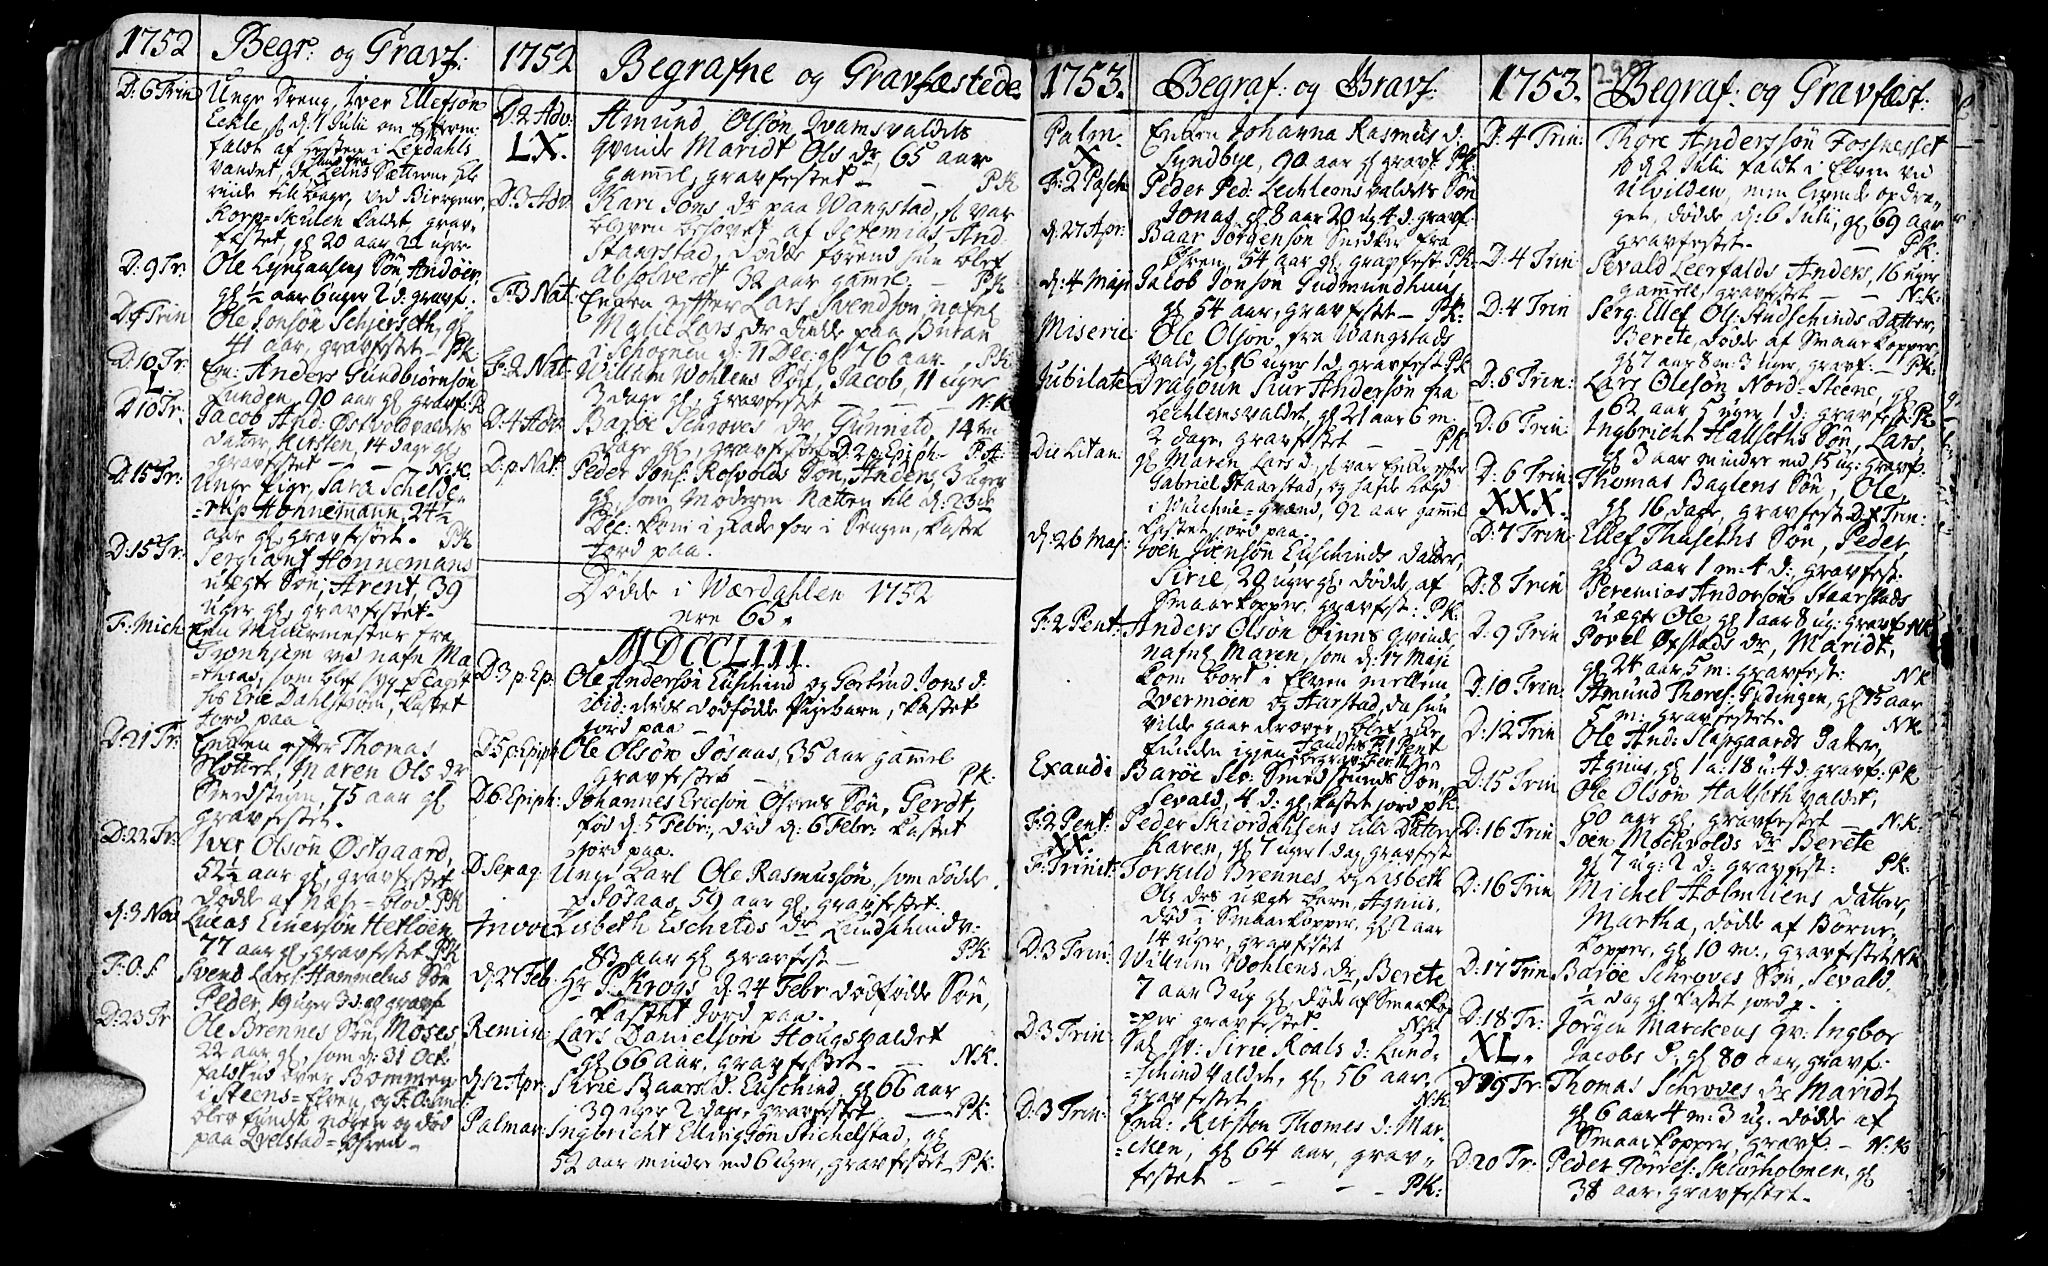 1752
Begr: og Gravf:
D: 6 Trin
Unge Dreng, Iver Ellefsøn
Eckle, d. 1 Julii om
faldt af Hesten i Lexdahls
Vandet,
ved
faldt grav-
festet, gl 20 aar 21 uger
D: 9 Tr.
Ole Lyngaasens Søn Andøer,
gl ½ aar 6 uger 2 d: gravf.
D Trin
Ole Jonsøn Schjerseth, gl
41 aar, gravfestet - PK
D: 10 Tr:
L.
Em: Anders Gundbiørnsøn
Lunden, 90 aar gl gravf:
D 10 Tr:
Jacob And: Østvoldvaldets
datter, Kirsten, 14 dage gl
gravfestet - - N.K.
D: 15 Tr:
Unge Pige, Sara Schelde-
=rup Honnemann, 24½
aar gl, gravfestet. PK
D: 15 Tr:
Sergiant Honnemans
uægte Søn, Arent, 39
uger gl, gravfestet.
F: Mich
Een Muurmester fra
Tronhjem ved nafn Ma-
=theus, som
hos Eric Dahlstrøm, kastet
Jord paa
D: 21 Tr:
Enken efter Thomas
Slottet, Maren Ols dr
Smedstuen, 75 aar gl
gravfestet.
D: 22 Tr:
Iver Olsøn Østgaard,
52½ aar gl, gravfestet
døde af Næse-blod. PK
d: 3 Nov
Lucas Einersøn Hetløen
77 aar gl, gravfestet PK
F: O. S
Svend Larss: Hammelens Søn
Peder, 19 uger 3 d: gl gravf
D: 23 Tr
Ole Brennes Søn, Moses,
22 aar gl, som d: 31 Oct.
faldt ud over Bommen
i Steens=Elven, og
blev funden nogen og død
paa Qvelstad=Ohren.
1752
Begrafne og Gravfæstede
D: 2 Adv:
LX.
Amund Olsøn Qvamsvaldets
Qvinde Maridt Ols dr, 65 aar
gamel, gravfestet - - PK
D: 3 Adv
Kari Jons dr paa Wangstad, som var
bleven besovet af Jeremias And:
Staarstad, døde førend hun blef
absolveret 32 aar gamel. - PK
F: 3 Nat
Enken efter Lars Svendsøn, nafnl
Malie Lars dr døde paa Buran
i Schognen d: 11 Dec: gl 76 aar, PK
F: 2 Nat
William Wohlens Søn, Jacob, 11 uger
3 dage gl, gravfestet - - N.K.
D: 4 Adv
Baroe Schroves dr, Gunnild 14
dage gl, gravfestet D: 2 p: Epiph- P.K.
D: p. Nat:
Peder Jons: Rosvolds Søn, Andens, 3 uger
gl, som Moderen Natten till d: 23de
Dec: kom i skade for i Sengen, kastet
Jord paa.
Døde i Wærdahlen 1752
ere 65.
MDCCLIII
D: 3 p: Ep.
Ole Andersøn Euschind og Gertrud Jons d.
ibid: deres dødfødde Pigebarn, kastet
jord paa -
D: 5 p: Epiph
Ole Olsøn Jøsaas, 35 aar gamel
gravfestet - - PK:
D: 6 Epiph:
Johannes Ericsøn Ohrens Søn, Gerdt,
fød d: 5 Febr:, død d: 6 Febr: kastet
jord paa.
D. Sexag.
Unge Karl Ole Rasmussøn, som døde
p Jøsaas, 59 aar gl, gravfestet.
Invoc
Lisbeth Eschilds dr Lundschind v:
83 aar gl gravfest - PK:
d: 27 Feb
Hr P. Krogs d: 24 Febr dødfødde Søn,
kastet Jord paa.
Remin:
Lars Danielsøn Hougsvaldet
gl 66 aar, gravfestet. - N.K.
d: 12 Apr:
Sirie Baars d. Euschind, gl 66 aar
39 uger 2 dage, gravfestet - PK:
Palmar:
Ingbricht Ellingsøn Stichelstad, gl
52 aar mindre end 6 uger, gravfestet PK:
1753.
Begraf: og Gravf:
Palm.
X
Enken Johanna Rasmus d.
Lyndbye, 90 aar gl gravf. PK
F: 2 Pasch
Peder Ped: Lechlemsvaldets Søn
Jonas, gl 8 aar 20 u. 4 d. gravf.
d: 27 Apr:
Baar Jørgensøn Snedker fra
Øhren, 54 aar gl, gravfest PK:
d: 4 Maji
Jacob Jonsøn Gudmundhuus
gl 54 aar, gravfestet - PK:
Miseric:
Ole Olsøn fra Wangstads
vald, gl 16 uger 1 d: gravfest PK
Jubilate
Dragoun Siur Andersøn fra
Lechlemsvaldet, gl 21 aar 6 m:
2 dage, gravfestet - PK
Die Litan:
gl Maren Lars d. var Enke efter
Gabriel Staarstad, og hafde Lægd
i Muchne=grænd, 92 aar gamel
kastet jord paa
d: 26 Maj:
Joen Joensøn Euschinds datter,
Sirie, 29 uger gl, døde af
Smaakopper, gravfest: PK:
F: 2 Pent:
Anders Olsøn Finnes Qvinde
nafnl Maren, som d: 17 Maji
kom bort i Elven mellem
Qvermoen og Aarstad, da hun
vilde gaae derover, blef ikke
funden igien
Exaudi
Baroe Smedstuens Søn,
Sevald, 4 d: gl, kastet jord p.
F: 2 Pent:
XX.
Peder Skiordahlsens Datter
Karen, gl 7 uger 1 dag gravfest
F: Trinit:
Torkild Brennes og Lisbeth
Ols drs uægte barn, Agnus,
død i Smaakopper, gl 2 aar
14 uger, gravfestet
D: 3 Trin:
William Wohlens dr, Berete
7 aar 3 ug gl, døde af Smaako-
=per gravfestet. N.K.
D: 3 Trin:
Sal qv: Sirie Roals d: Lund-
=schindvaldet, gl 56 aar,
gravfestet - - N.K
D: 3 Trin:
Enk: Kirsten Thomes d: Mar-
=cken, gl 64 aar, grav-
festet - - - PK:
1753.
290
Begraf: og Gravfæst:
D: 4 Trin:
Thore Anderssøn Fossnesset
d 2 Julii faldt i Elven ved
Ulvilden, men livende opdra-
get, døde d: 6 Julii, gl 69 aar
gravfestet. - PK:
D: 4 Trin
Sevald Leerfalds Anders, 16 uger
gammel, gravfestet - - N.K:
D: 4 Trin
Serg. Ellef Ols: Indschinds Datter,
Berete, døde af Smaakopper,
gl 7 aar 8 m: 3 uger, gravf. - PK:
D: 6 Trin:
Lars Olesøn Nord-Steene, gl
62 aar 5 uger 1 d: gravfest PK
D: 6 Trin:
Ingbricht Hallseths Søn, Lars,
gl 3 aar mindre end 15 ug: gravf.
D: 6 Trin:
XXX.
Thomas Baglens Søn, Ole,
gl 16 dage, gravfest D: 7 Trin:
D: 7 Trin:
Ellef Thuseths Søn, Peder,
gl 3 aar 1 m: 4 d: gravfest:
D: 8 Trin
Jeremias Andersøn Staarstads
uægte Ole, gl 1 aar 8 ug: gravf NK
D: 9 Trin
Povel Øxstads dr, Maridt,
gl 24 aar 5 m: gravfest: NK
D: 10 Trin:
Amund Thores: Gidingen, gl 75 aar
5 m: gravfestet. NK.
D: 12 Trin
Ole And: Slapgaards Datter,
Agnus, gl 1 a: 18 u: 4 d: gravf: PK
D: 15 Trin
Ole Olsøn Hallsethvaldet,
60 aar gl, gravfestet - N.K:
D: 16 Trin
Joen Mochvolds dr Berete
gl 7 ug: 2 d: gravfest: PK:
D: 16 Trin
Michel Holmliens datter,
Martha, døde af Børne-
kopper, gl 10 m:, gravfestet NK
D: 17 Trin
Baroe Schroves Søn, Sevald,
½ dag gl kastet jord p.
D: 18 Tr:
XL.
Jørgen Marckens Qv: Ingbor
Jacobs d: gl 80 aar, gravf.
D 19 Tr:
Thomas Schroves dr Maridt
gl 6 aar 4 m: 3 ug. døde af
Smaakopper, gravf. - N:K
D: 20 Tr:
Peder Tores: Skiørholmen, gl
38 aar, gravfestet.